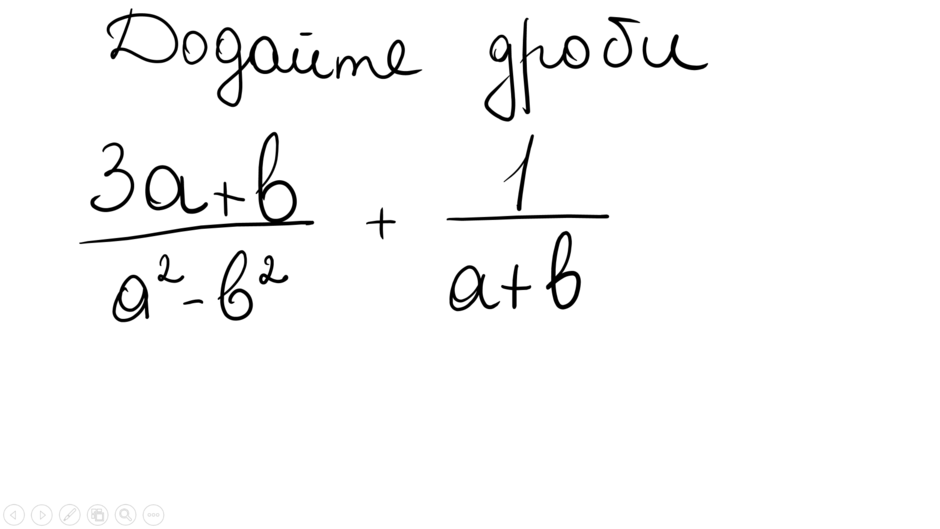 Додайте дроби
3a+b / a²-b² + 1 / a+b